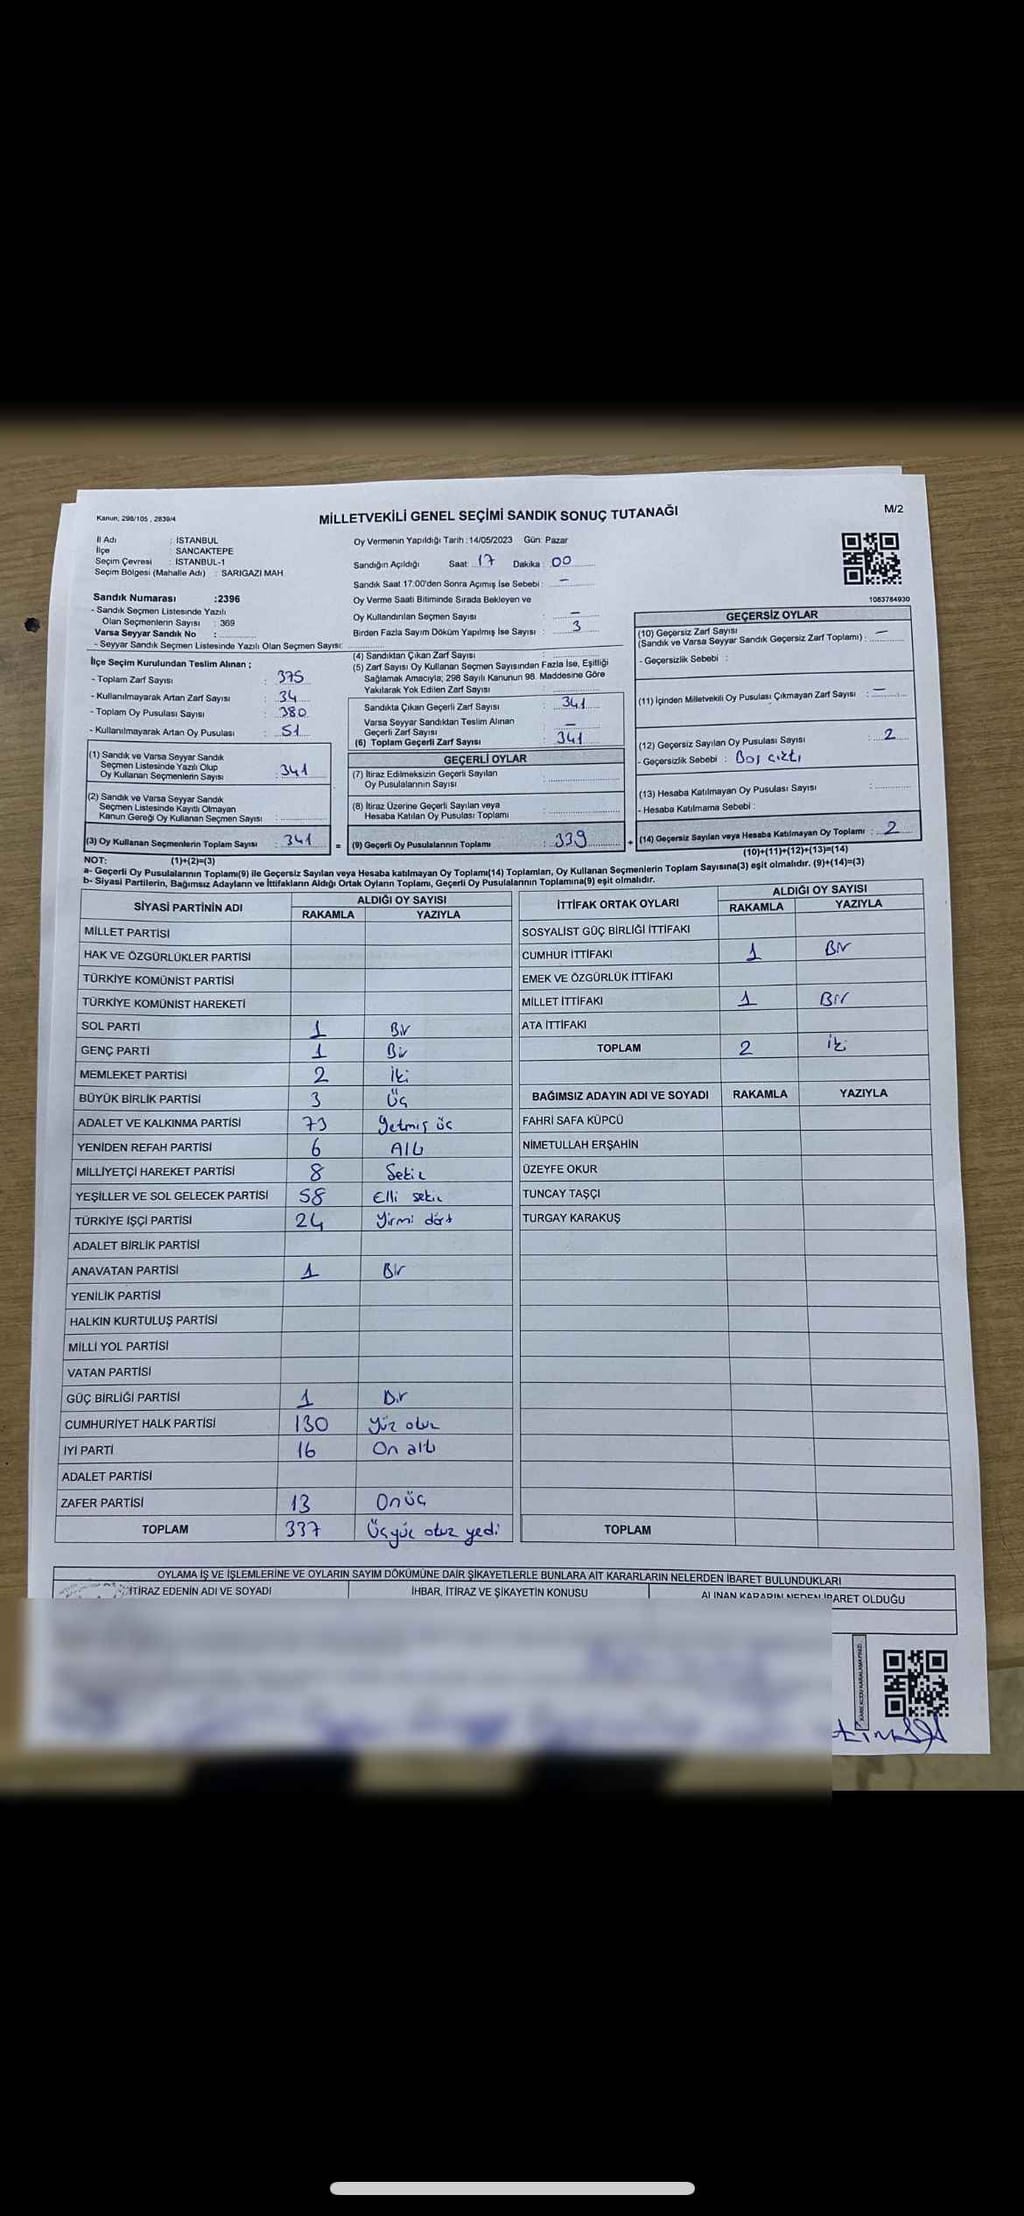 Kanun, 298/105 , 2839/4
MİLLETVEKİLİ GENEL SEÇİMİ SANDIK SONUÇ TUTANAĞI
M/2
İl Adı : İSTANBUL
İlçe : SANCAKTEPE
Seçim Çevresi : İSTANBUL-1
Seçim Bölgesi (Mahalle Adı) : SARIGAZİ MAH
Oy Vermenin Yapıldığı Tarih :14/05/2023 Gün: Pazar
Sandığın Açıldığı Saat 17 Dakika 00
Sandık Saat 17:00'den Sonra Açımış İse Sebebi : -
Oy Verme Saati Bitiminde Sırada Bekleyen ve
Oy Kullandırılan Seçmen Sayısı : -
Birden Fazla Sayım Döküm Yapılmış İse Sayısı : 3
1083784930
Sandık Numarası :2396
- Sandık Seçmen Listesinde Yazılı
Olan Seçmenlerin Sayısı : 369
Varsa Seyyar Sandık No :
- Seyyar Sandık Seçmen Listesinde Yazılı Olan Seçmen Sayısı:
İlçe Seçim Kurulundan Teslim Alınan ;
- Toplam Zarf Sayısı : 375
- Kullanılmayarak Artan Zarf Sayısı : 34
- Toplam Oy Pusulası Sayısı : 380
- Kullanılmayarak Artan Oy Pusulası : 51
(1) Sandık ve Varsa Seyyar Sandık
Seçmen Listesinde Yazılı Olup
Oy Kullanan Seçmenlerin Sayısı : 341
(2) Sandık ve Varsa Seyyar Sandık
Seçmen Listesinde Kayıtlı Olmayan
Kanun Gereği Oy Kullanan Seçmen Sayısı :
(3) Oy Kullanan Seçmenlerin Toplam Sayısı : 341 =
(4) Sandıktan Çıkan Zarf Sayısı :
(5) Zarf Sayısı Oy Kullanan Seçmen Sayısından Fazla İse, Eşitliği
Sağlamak Amacıyla; 298 Sayılı Kanunun 98. Maddesine Göre
Yakılarak Yok Edilen Zarf Sayısı :
Sandıkta Çıkan Geçerli Zarf Sayısı : 341
Varsa Seyyar Sandıktan Teslim Alınan
Geçerli Zarf Sayısı : -
(6) Toplam Geçerli Zarf Sayısı : 341
GEÇERLİ OYLAR
(7) İtiraz Edilmeksizin Geçerli Sayılan
Oy Pusulalarının Sayısı :
(8) İtiraz Üzerine Geçerli Sayılan veya
Hesaba Katılan Oy Pusulası Toplamı :
(9) Geçerli Oy Pusulalarının Toplamı : 339 +
GEÇERSİZ OYLAR
(10) Geçersiz Zarf Sayısı
(Sandık ve Varsa Seyyar Sandık Geçersiz Zarf Toplamı) : -
- Geçersizlik Sebebi :
(11) İçinden Milletvekili Oy Pusulası Çıkmayan Zarf Sayısı : -
(12) Geçersiz Sayılan Oy Pusulası Sayısı : 2
- Geçersizlik Sebebi : Boş çıztı
(13) Hesaba Katılmayan Oy Pusulası Sayısı :
- Hesaba Katılmama Sebebi :
(14) Geçersiz Sayılan veya Hesaba Katılmayan Oy Toplamı : 2
NOT: (1)+(2)=(3)
(10)+(11)+(12)+(13)=(14)
a- Geçerli Oy Pusulalarının Toplamı(9) ile Geçersiz Sayılan veya Hesaba katılmayan Oy Toplamı(14) Toplamları, Oy Kullanan Seçmenlerin Toplam Sayısına(3) eşit olmalıdır. (9)+(14)=(3)
b- Siyasi Partilerin, Bağımsız Adayların ve İttifakların Aldığı Ortak Oyların Toplamı, Geçerli Oy Pusulalarının Toplamına(9) eşit olmalıdır.
SİYASİ PARTİNİN ADI ALDIĞI OY SAYISI
RAKAMLA YAZIYLA
MİLLET PARTİSİ
HAK VE ÖZGÜRLÜKLER PARTİSİ
TÜRKİYE KOMÜNİST PARTİSİ
TÜRKİYE KOMÜNİST HAREKETİ
SOL PARTİ 1 Bir
GENÇ PARTİ 1 Bir
MEMLEKET PARTİSİ 2 İki
BÜYÜK BİRLİK PARTİSİ 3 Üç
ADALET VE KALKINMA PARTİSİ 73 Yetmiş üç
YENİDEN REFAH PARTİSİ 6 Altı
MİLLİYETÇİ HAREKET PARTİSİ 8 Sekiz
YEŞİLLER VE SOL GELECEK PARTİSİ 58 Elli sekiz
TÜRKİYE İŞÇİ PARTİSİ 24 Yirmi dört
ADALET BİRLİK PARTİSİ
ANAVATAN PARTİSİ 1 Bir
YENİLİK PARTİSİ
HALKIN KURTULUŞ PARTİSİ
MİLLİ YOL PARTİSİ
VATAN PARTİSİ
GÜÇ BİRLİĞİ PARTİSİ 1 Bir
CUMHURİYET HALK PARTİSİ 130 Yüz otuz
İYİ PARTİ 16 On altı
ADALET PARTİSİ
ZAFER PARTİSİ 13 Onüç
TOPLAM 337 Üçyüz otuz yedi
İTTİFAK ORTAK OYLARI ALDIĞI OY SAYISI
RAKAMLA YAZIYLA
SOSYALİST GÜÇ BİRLİĞİ İTTİFAKI
CUMHUR İTTİFAKI 1 Bir
EMEK VE ÖZGÜRLÜK İTTİFAKI
MİLLET İTTİFAKI 1 Bir
ATA İTTİFAKI
TOPLAM 2 İki
BAĞIMSIZ ADAYIN ADI VE SOYADI RAKAMLA YAZIYLA
FAHRİ SAFA KÜPCÜ
NİMETULLAH ERŞAHİN
ÜZEYFE OKUR
TUNCAY TAŞÇI
TURGAY KARAKUŞ
TOPLAM
OYLAMA İŞ VE İŞLEMLERİNE VE OYLARIN SAYIM DÖKÜMÜNE DAİR ŞİKAYETLERLE BUNLARA AİT KARARLARIN NELERDEN İBARET BULUNDUKLARI
İTİRAZ EDENİN ADI VE SOYADI İHBAR, İTİRAZ VE ŞİKAYETİN KONUSU ALINAN KARARIN NEDEN İBARET OLDUĞU